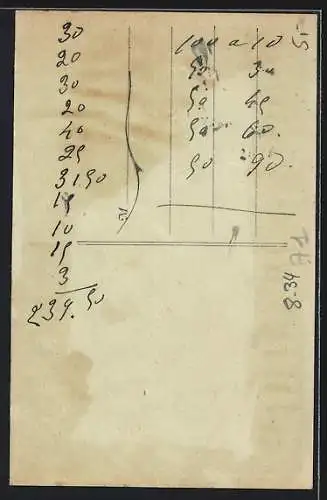 30
20
30
20
40
25
31 50
15
10
15
3
239. 50
100 a 10
50 30
50 45
50 60.
50 90.
8-34